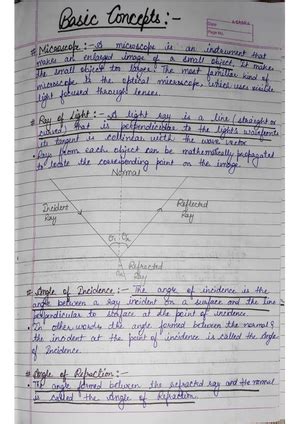 Basic Concepts:-
Date
Page No.
# Microscope :- A microscope is an instrument that
makes an enlarged image of a small object, it makes
the small object too larger. The most familiar kind of
microscope is the optical microscope, which uses visible
light focused through lenses.
# Ray of Light :- A light ray is a line (straight or
curved) that is perpendicular to the light's wavefronts
its tangent is collinear with the wave vector.
• Rays from each object can be mathematically propagated
to locate the corresponding point on the image.
Normal
Incident
Ray
Reflected
Ray
Refracted
Ray
# Angle of Incidence :- The angle of incidence is the
angle between a ray incident on a surface and the line
perpendicular to surface at the point of incidence.
• In other words the angle formed between the normal &
the incident at the point of incidence is called the Angle
of Incidence.
# Angle of Refraction :-
• The angle formed between the refracted ray and the normal
is called the Angle of Refraction.